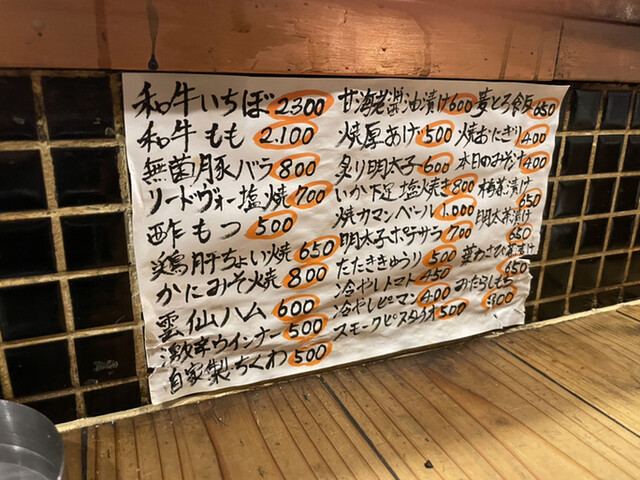 和牛いちぼ 2300
和牛もも 2.100
無菌豚バラ 800
リードヴォー塩焼 700
酢もつ 500
鶏肝ちょい焼 650
かにみそ焼 800
雲仙ハム 600
激辛ウインナー 500
自家製ちくわ 500
甘海老醤油漬け 600
焼厚あげ 500
炙り明太子 600
いか下足塩焼き 800
焼カマンベール 1.000
明太子ポテサラ 700
たたききゅうり 500
冷やしトマト 450
冷やしピーマン 400
スモークピスタチオ 500
麦とろ飯 650
焼おにぎり 400
本日のみそ汁 400
梅茶漬け 650
明太茶漬け 650
葉わさび茶漬け 650
みたらしもち 300